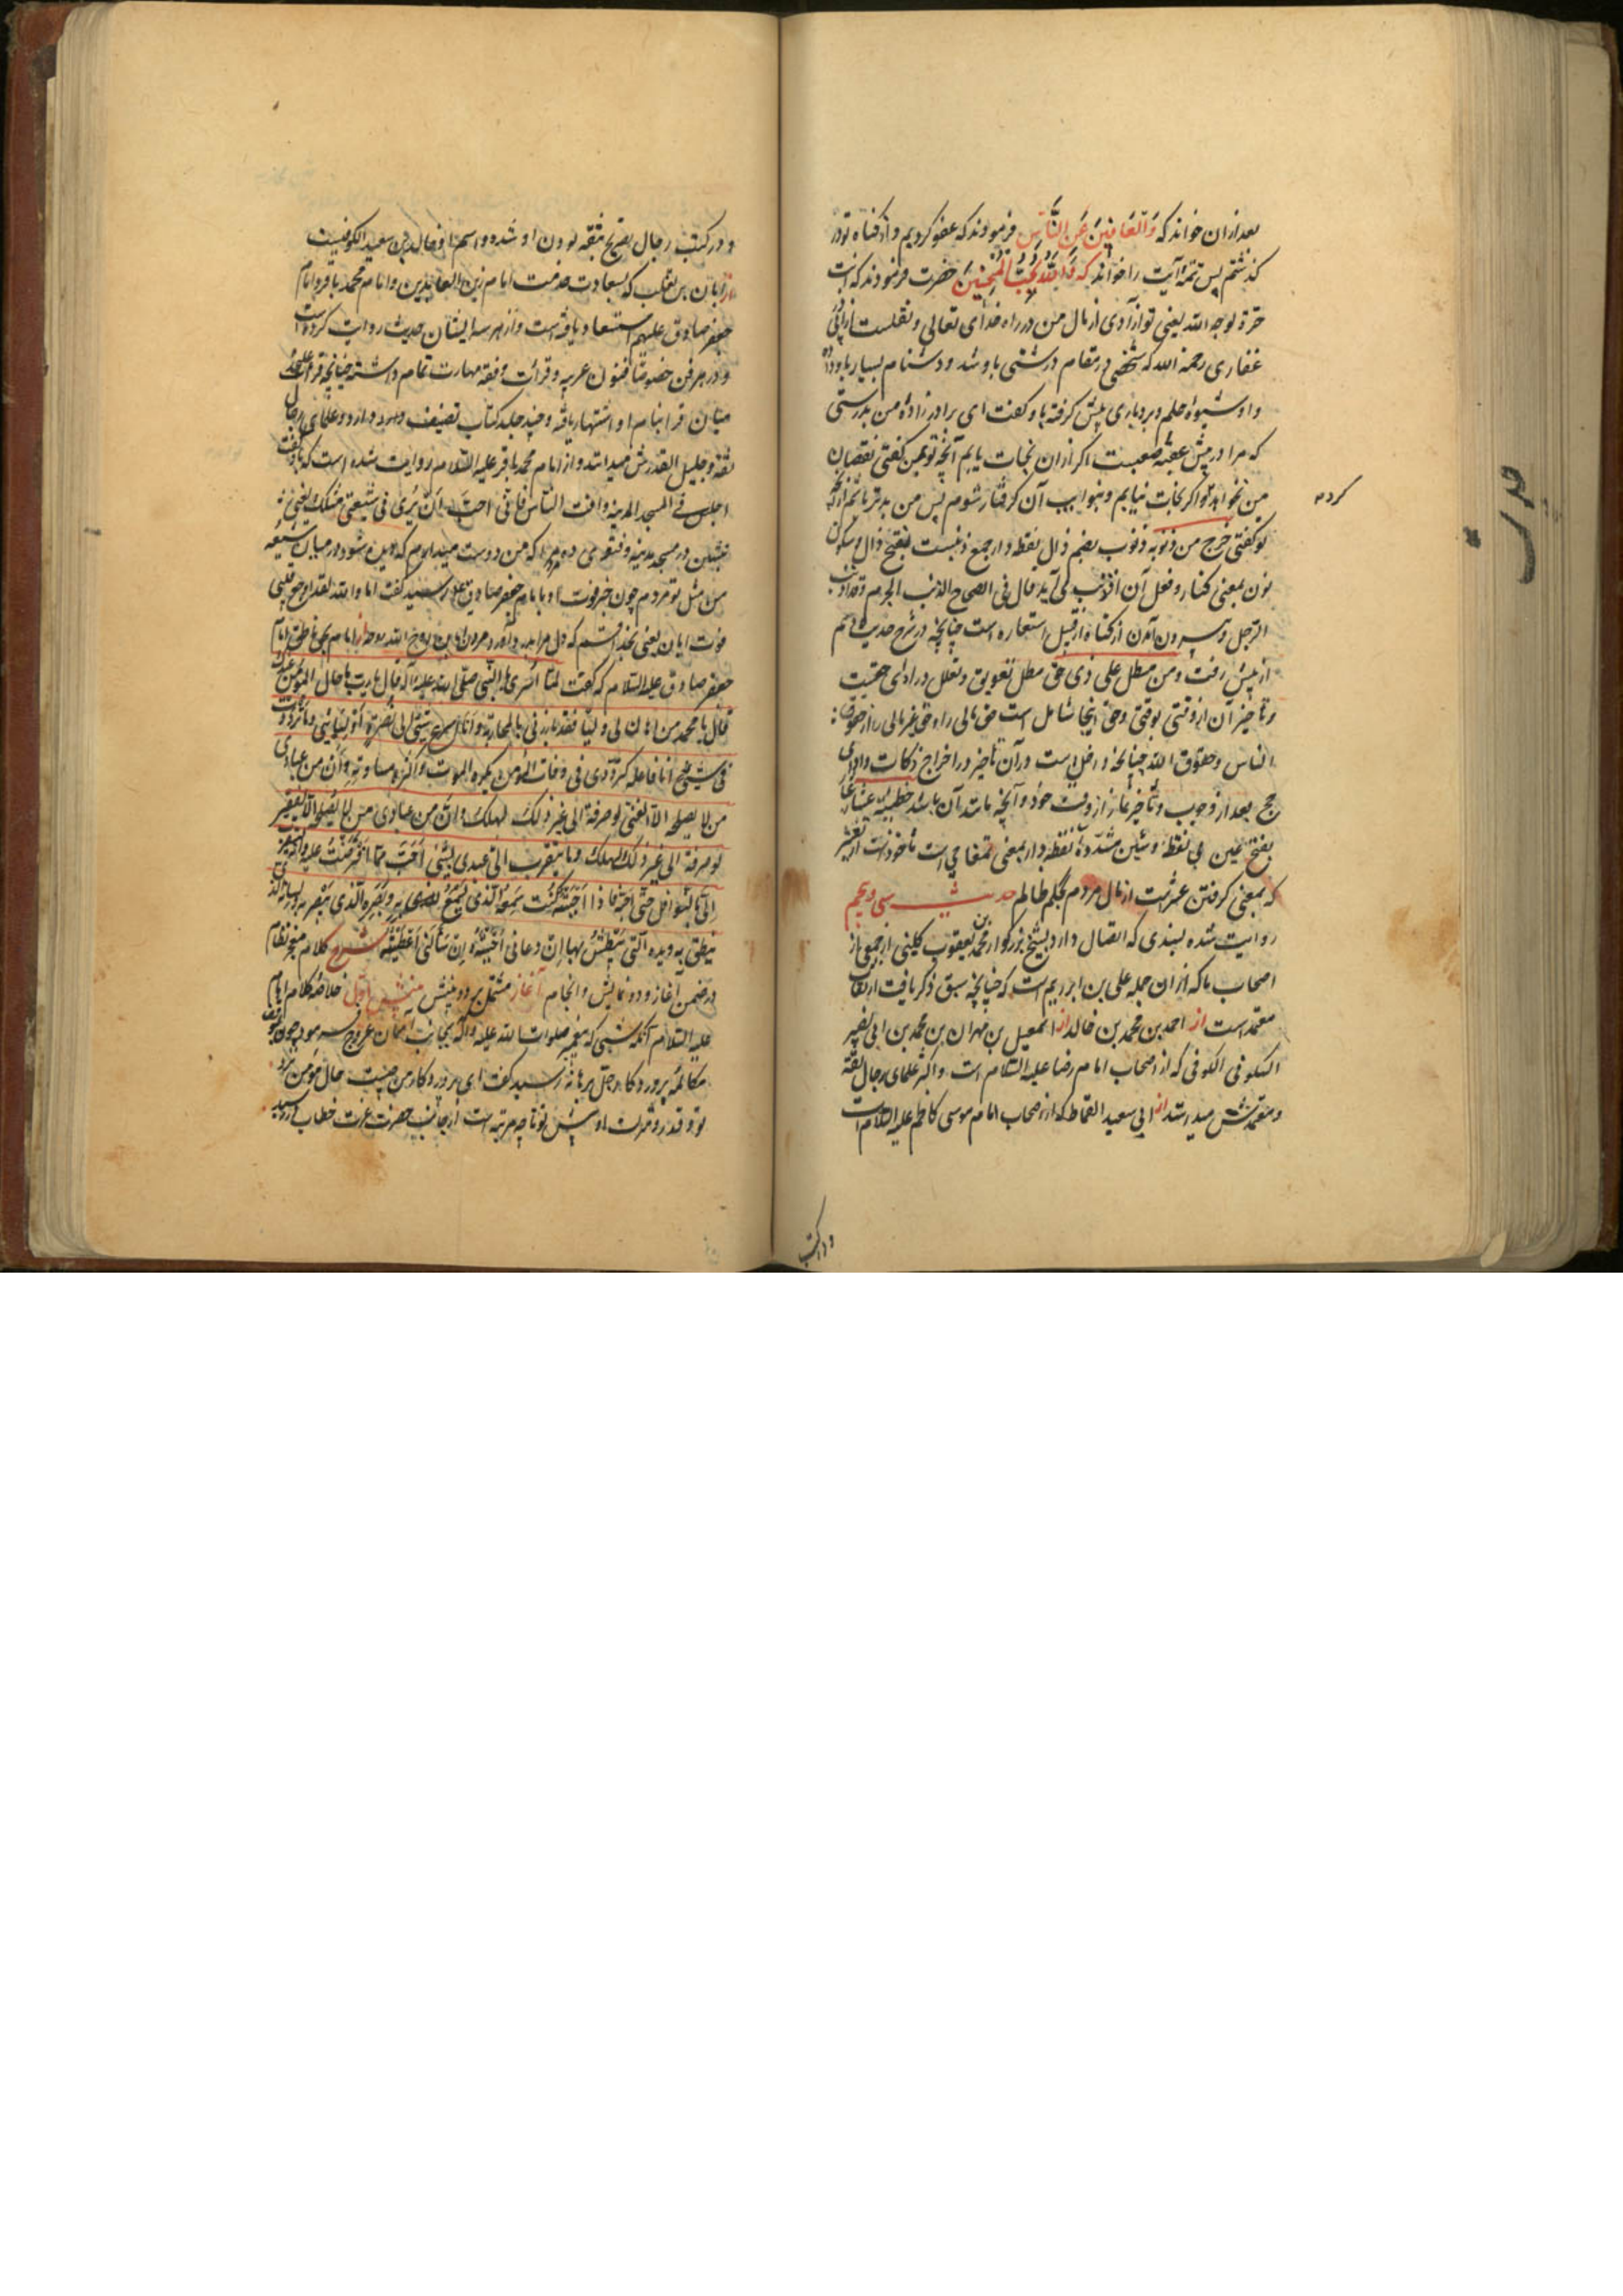 بعد ازان خواند که وَالْعَافِینَ عَنِ النَّاسِ فرمودند که عفو کردیم و از گناه تو در
گذشتم پس تتمهٔ آیت را خواند که وَاللّهُ یُحِبُّ الْمُحْسِنِینَ حضرت فرمودند که انت
حرّة لوجه الله یعنی تو آزادی از مال من در راه خدای تعالی و نقلست از ابی ذر
غفاری رحمه الله که شخصی در مقام درشتی با و شد و دشنام بسیار باو داد
و او شیوهٔ حلم و بردباری پیش گرفته باو گفت ای برادر زادهٔ من بدرستی
که مرا در پیش عقبهٔ صعبیست اگر ازان نجات یابم آنچه تو بمن گفتی نقصان
من نخواهد کرد و اگر نجات نیابم و بنوایب آن گرفتار شوم پس من بدتر باشم از آنچه
تو گفتی خرج من ذنوبه ذنوب بضم ذال نقطه دار جمع ذنبست بفتح ذال و سکون
نون بمعنی گناه و فعل آن اذنب می آید قال فی الصحاح الذنب الجرم و قد اذنب
الرجل و بیرون آمدن از گناه از قبیل استعاره است چنانچه در شرح حدیث
از پیش رفت و من مطل علی ذی حق مطل تعویق و تعلل در ادای حقیست
و تاخیر آن از وقتی بوقتی و حق اینجا شامل است حق مالی را و حق غیر مالی را از حقوق
الناس و حقوق الله چنانچه داخل است درآن تاخیر در اخراج زکات و ادای
حج بعد از وجوب و تاخیر نماز از وقت خود و آنچه مانند آن باشد خطیئة عشار
بفتح عین بی نقطه و شین مشدّدهٔ نقطه دار بمعنی تمغاچی است ماخوذست از عشر
که بمعنی گرفتن عشرست از مال مردم بحکم ظالم حدیث سی و پنجم
روایت شده بسندی که اتصال دارد بشیخ بزرگوار محمد بن یعقوب کلینی از جمعی از
اصحاب ما که ازان جمله علی بن ابراهیم است که چنانچه سبق ذکر یافت از ثقات
معتمد است از احمد بن محمد بن خالد از اسمعیل بن مهران بن محمد بن ابی نصر
السکونی الکوفی که از اصحاب امام رضا علیه السلام است و اکثر علمای رجال ثقه
و معتمدش میدانند از ابی سعید القماط که از اصحاب امام موسی کاظم علیه السلام است
و در کتب
کرد
حدیث
و در کتب رجال تصریح بثقه بودن او شده و اسم او خالد بن سعید الکوفیست
از ابان بن تغلب که بسعادت خدمت امام زین العابدین و امام محمد باقر و امام
جعفر صادق علیهم السلام استسعاد یافته است و از هر سه ایشان حدیث روایت کرده است
و در هر فن خصوصا فنون عربیه و قرائت و فقه مهارت تمام داشته چنانچه قرائت
میان قرا بنام او اشتهار یافته و چند جلد کتاب تصنیف دارد و علمای رجال
ثقه و جلیل القدرش میدانند و از امام محمد باقر علیه السلام روایت شده است که باو گفت
اجلس فی المسجد المدینه وافت الناس فانی احبّ ان یُرَی فی شیعتی مثلک یعنی
بنشین در مسجد مدینه و فتوی ده مردم را که من دوست میدارم که دیده شود در میان شیعه
من مثل تو مردم چون خبر فوت او بامام جعفر صادق علیه السلام رسید گفت اما والله لقد اوجع قلبی
موت ابان یعنی بخدا قسم که دل مرا بدرد آورد مردن ابان روح الله روحه از امام بحق ناطق امام
جعفر صادق علیه السلام که گفت لمّا اُسری بالنبی صلی الله علیه و آله قال یا ربّ ما حال المؤمن عندک
قال یا محمد من اهان لی ولیّا فقد بارزنی بالمحاربة و انا اسرع شیئی الی نصرة اولیائی و ما ترددت
فی شیئی انا فاعله کتردّدی فی وفات المؤمن یکره الموت و اکره مساءته و انّ من عبادی
من لا یصلحه الا الغنی لو صرفته الی غیر ذلک لهلک و انّ من عبادی من لا یصلحه الا الفقیر
لو صرفته الی غیر ذلک لهلک و ما یتقرب الیّ عبدی بشیئی احبّ ممّا افترضتُ علیه و انّه لیتقرب
الیّ بالنوافل حتّی احبّه فاذا احببته کنت سَمعَه الذی یَسْمَعُ به و بَصَرَه الذی یبصر به و لسانه الذی
ینطق به و یده التی یبطش بها ان دعانی اجبته و ان سألنی اعطیته شرح کلام معجز نظام
در ضمن آغاز و دو نمایش و انجام آغاز مشتمل بر دو بینش بینش اوّل خلاصهٔ کلام امام
علیه السلام آنکه شبی که پیغمبر صلوات الله علیه و آله بجانب آسمان عروج فرمود چون بموقف
مکالمهٔ پروردگار جلّ برهانه رسید گفت ای پروردگار من چیست حال مؤمن نزد
تو و قدر و منزلت او پیش تو تا چه مرتبه است از جانب حضرت عزت خطاب رسید